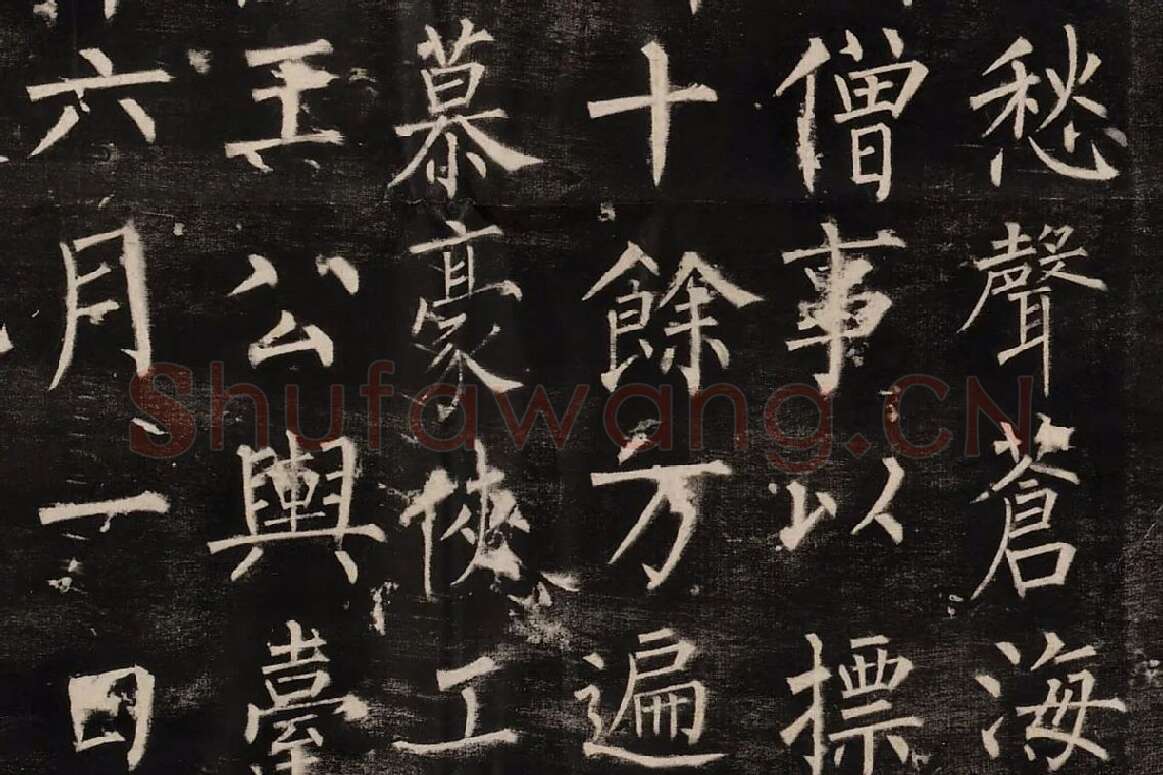 愁聲蒼海
僧事以摽
十餘方遍
慕豪俠工
王公輿臺
六月一日
Shufawang.CN